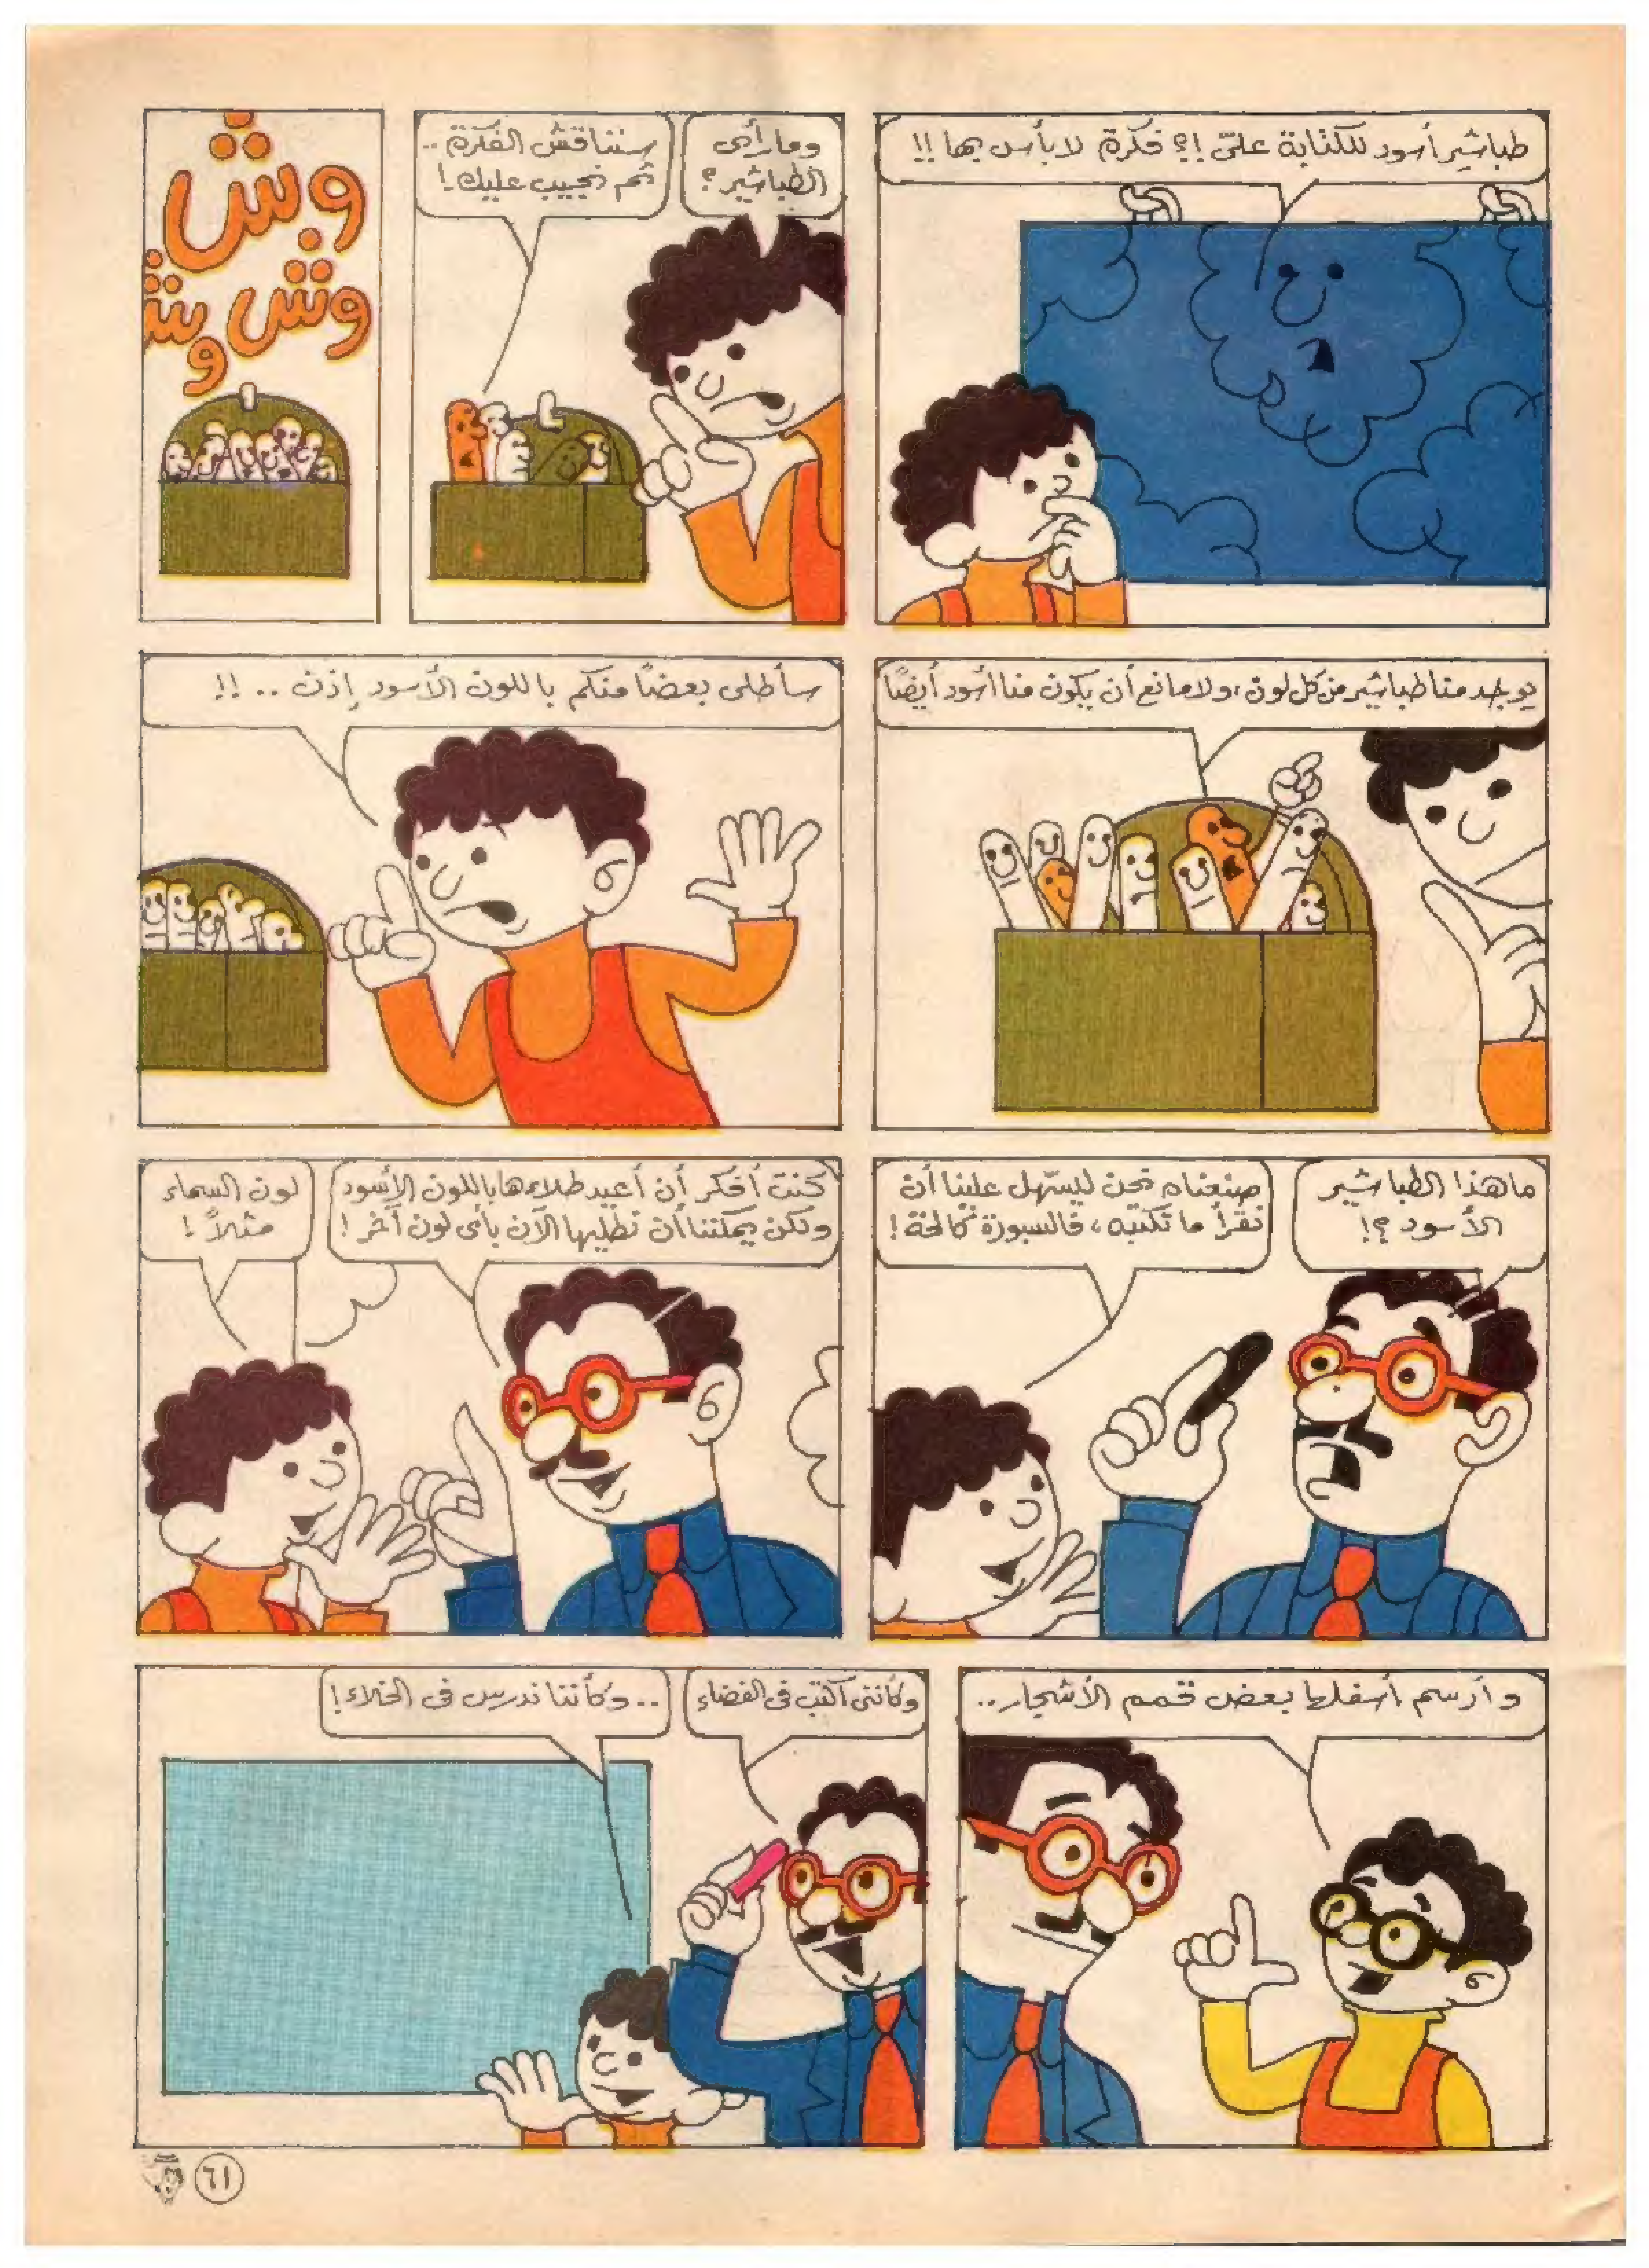 طباشير أسود للكتابة علىّ !؟ فكرة لا بأس بها !!
وما رأى
الطباشير؟
سنناقش الفكرة ..
ثم نجيب عليك !
وش
وش
وش
يوجد منا طباشير من كل لون، ولا مانع أن يكون منا أسود أيضًا
سأطلى بعضًا منكم باللون الأسود إذن .. !!
ما هذا الطباشير
الأسود ؟!
صنعناه نحن ليسهّل علينا أن
نقرأ ما تكتبه ، فالسبورة كالحة !
كنت أفكر أن أعيد طلاءها باللون الأسود
ولكن يمكننا أن نطليها الآن بأى لون آخر !
لون السماء
مثلاً !
وأرسم أسفلها بعض قمم الأشجار ..
وكأننى أكتب فى الفضاء
.. وكأننا ندرس فى الخلاء !
٦١